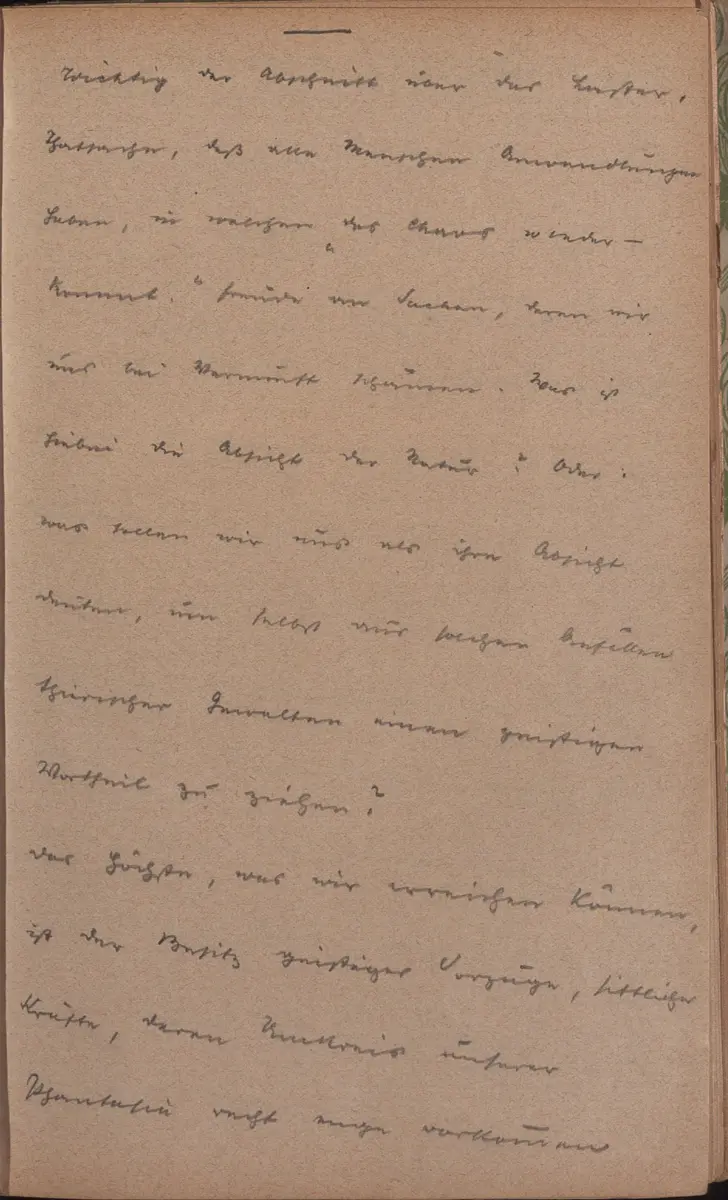 Wichtig der Abschnitt über das Laster.
Thatsache, daß alle Menschen Anwandlungen
haben, in welchen „das Chaos wieder-
kommt.“ Freude an Sachen, deren wir
uns bei Vernunft schämen. Was ist
hiebei die Absicht der Natur? Oder:
was sollen wir uns als ihre Absicht
deuten, um selbst aus solchen Anfällen
thierischer Gewalten einen geistigen
Vortheil zu ziehen?
Das Höchste, was wir erreichen können,
ist der Besitz geistiger Vorzüge, sittlicher
Kräfte, deren Umkreis unserer
Phantasie recht enge vorkommen